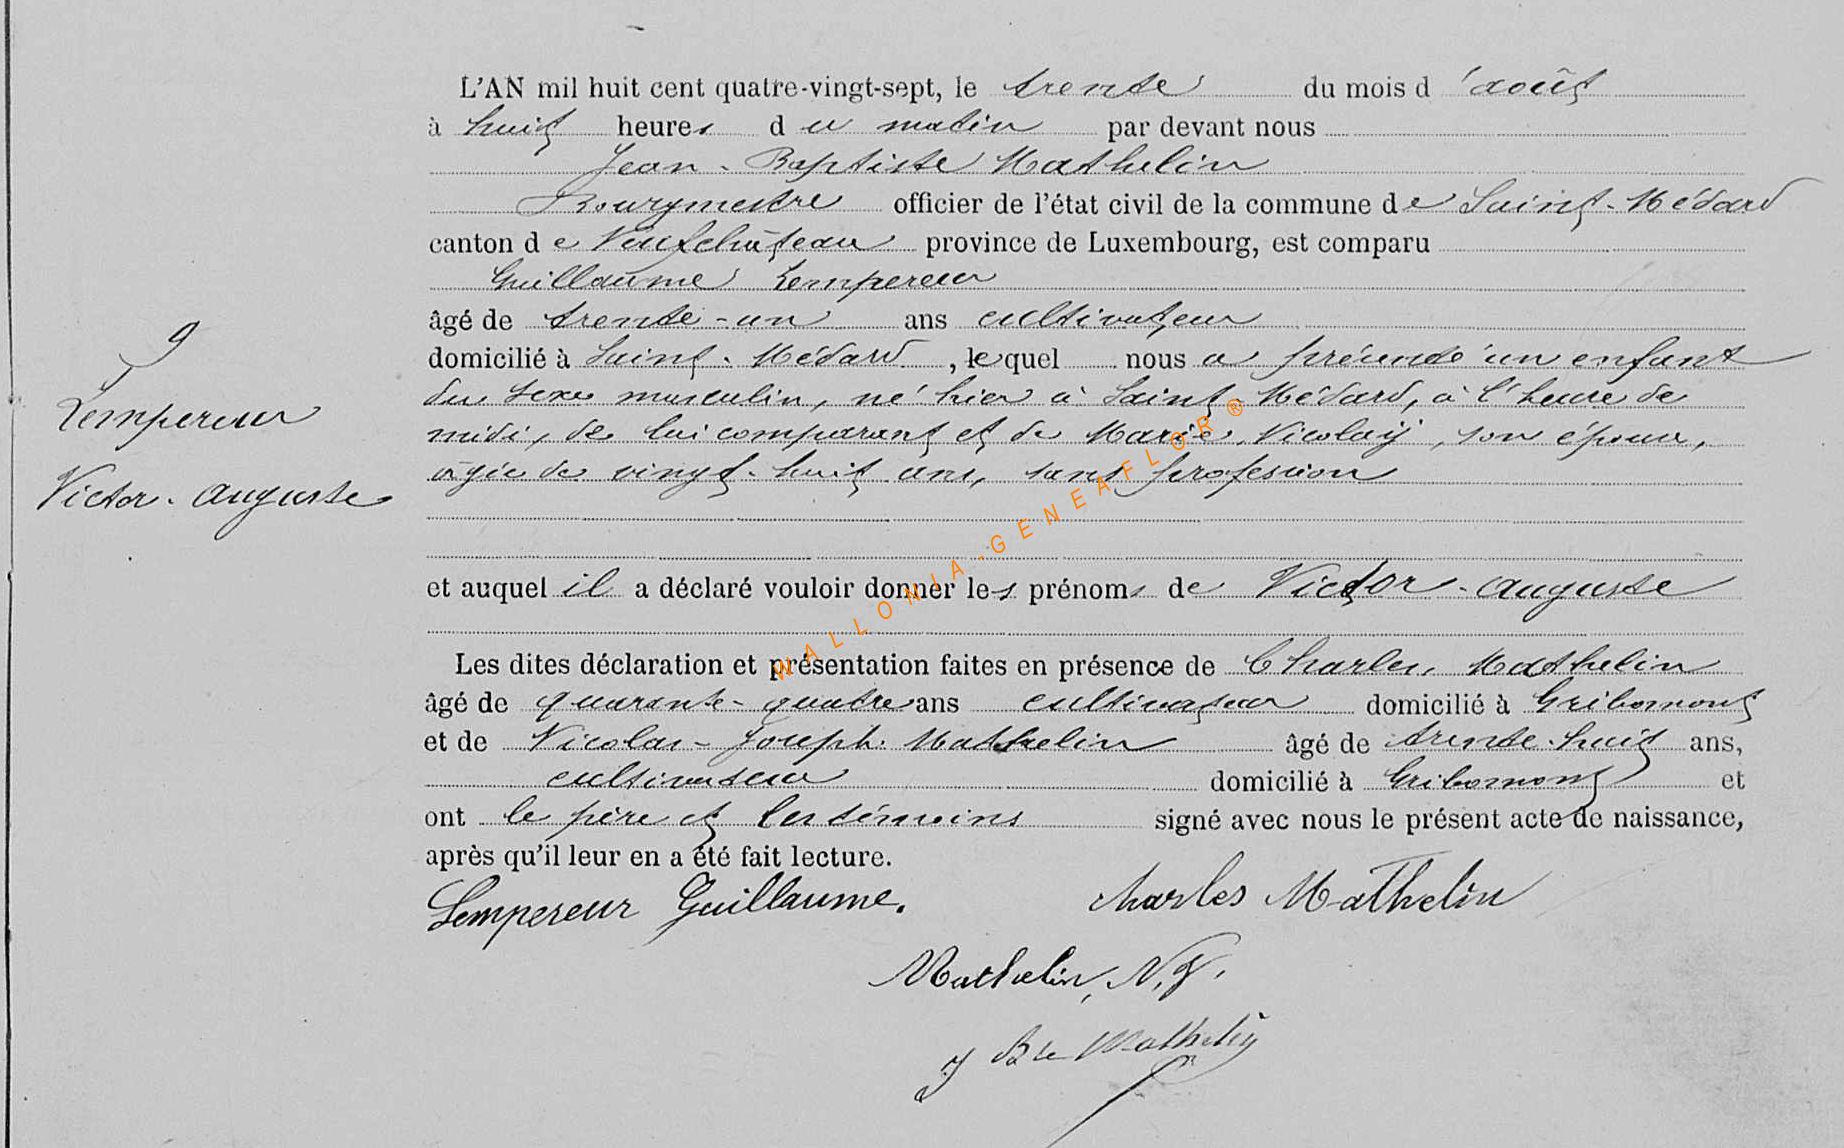 L'AN mil huit cent quatre-vingt-sept, le trente du mois d'août
à huit heures du matin par devant nous
Jean-Baptiste Mathelin
Bourgmestre officier de l'état civil de la commune de Saint-Médard
canton de Neufchâteau province de Luxembourg, est comparu
Guillaume Lempereur
âgé de trente-un ans cultivateur
domicilié à Saint-Médard, lequel nous a présenté un enfant
du sexe masculin, né hier à Saint-Médard, à l'heure de
midi, de lui comparant et de Marie Nicolaÿ, son épouse,
âgée de vingt-huit ans, sans profession
et auquel il a déclaré vouloir donner les prénoms de Victor-auguste
Les dites déclaration et présentation faites en présence de Charles Mathelin
âgé de quarante-quatre ans cultivateur domicilié à Gribomont
et de Nicolas-Joseph Mathelin âgé de trente-huit ans,
cultivateur domicilié à Gribomont et
ont le père et les témoins signé avec nous le présent acte de naissance,
après qu'il leur en a été fait lecture.
9
Lempereur
Victor-auguste
Lempereur Guillaume.
charles Mathelin
Mathelin, N. J.
J Bte Mathelin
WALLONIA-GENEAFLOR®